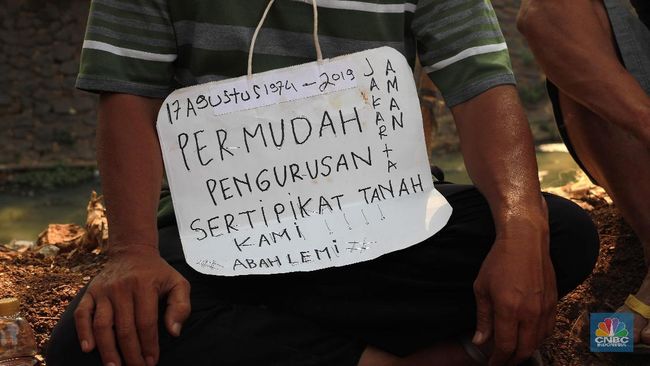 17 AGUSTUS 1974 - 2019
JAKARTA
AMAN
PERMUDAH
PENGURUSAN
SERTIPIKAT TANAH
KAMI !!!!
ABAH LEMI
CNBC
INDONESIA